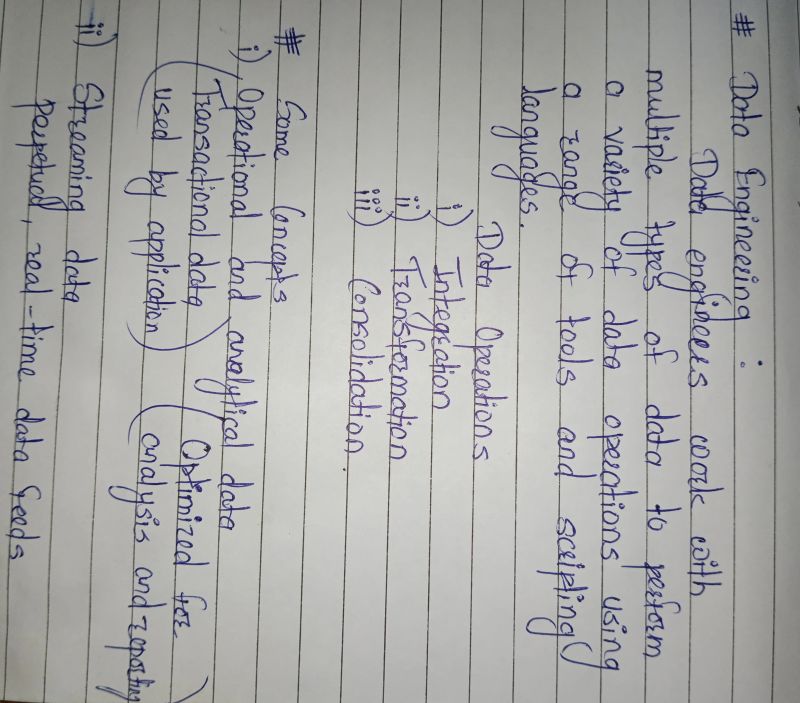 # Data Engineering :
Data engineers work with
multiple types of data to perform
a variety of data operations using
a range of tools and scripting
languages.
Data Operations
i) Integration
ii) Transformation
iii) Consolidation.
# Some Concepts
i) Operational and analytical data
(Transactional data used by application) (Optimized for analysis and reporting)
ii) Streaming data
perpetual, real-time data feeds